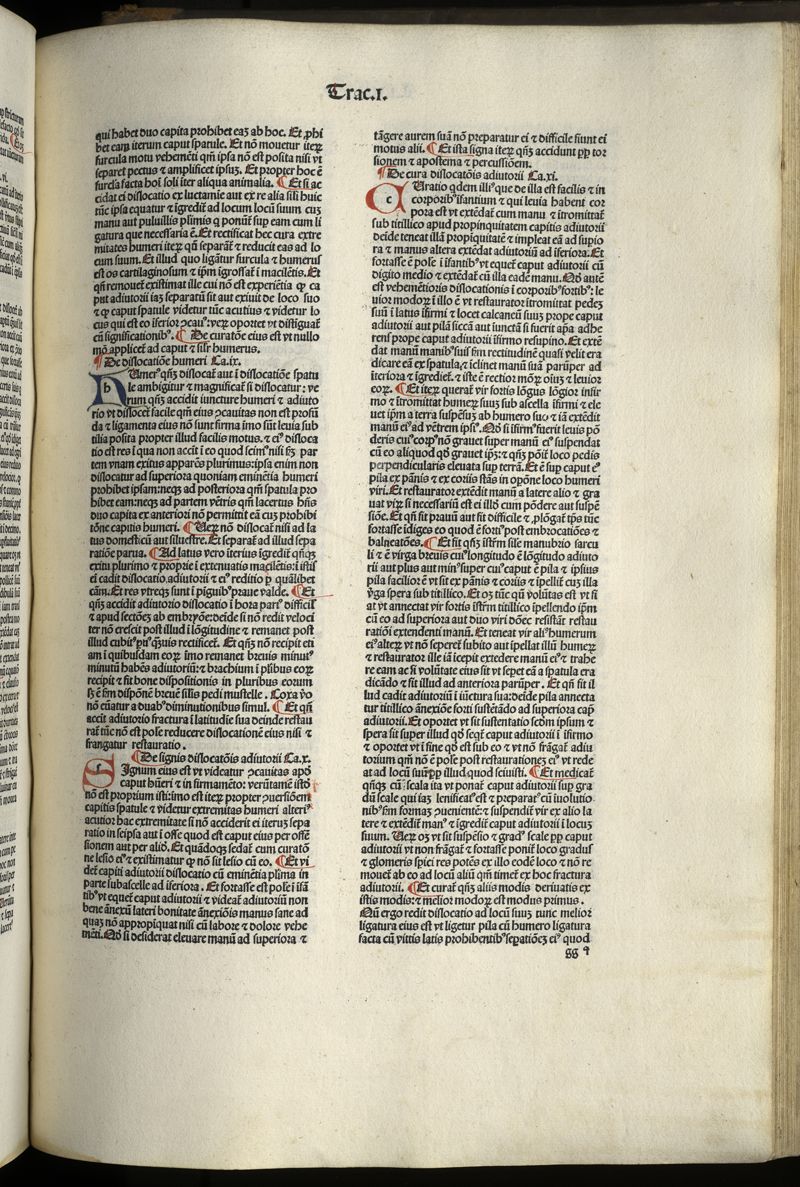 Trac.I.
qui habet duo capita prohibet eaz ab hoc. Et ꝓhi
bet eam iterum caput spatule. Et nō mouetur iteꝝ
furcula motu vehemēti qm̄ ipsa nō est posita nisi vt
separet pectus ⁊ amplificet ipsuz. Et propter hoc ē
furcla facta hoī soli iter aliqua animalia. ¶ Et si ac
cidat ei dislocatio ex luctamīe aut ex re alia sili huic
tūc ipsa equatur ⁊ īgredit̄ ad locum locū suum cuz
manu aut puluillis plīmis q̄ ponūt̄ sup eam cum li
gatura que necessaria ē. Et rectificat hec cura extre
mitates humeri iteꝝ qn̄ separāt̄ ⁊ reducit eas ad lo
cum suum. Et illud quo ligātur furcula ⁊ humerus
est os cartilaginosum ⁊ ip̄m īgrossat̄ ī macilētis. Et
qn̄ remouet̄ existimat ille cui nō est experiētia ꝙ ca
put adiutorii iaz separatū sit aut exiuit de loco suo
⁊ ꝙ caput spatule videtur tūc acutius ⁊ videtur lo
cus qui est eo īferior ꝯcauꝰ: veꝝ oportet vt distīguat̄
cū significationibꝰ. ¶ De curatōne eius est vt nullo
mō applicet̄ ad caput ⁊ silr̄ humerus.
¶ De dislocatiōe humeri Ca.ix.
hUmerꝰ qn̄qz dislocat̄ aut ī dislocatiōe spatu
le ambigitur ⁊ magnificat̄ si dislocatur: ve
rum qn̄z accidit iuncture humeri ⁊ adiuto
rio vt dislocet̄ facile qm̄ eius ꝯcauitas non est profū
da ⁊ ligamenta eius nō sunt firma īmo sūt leuia sub
tilia posita propter illud facilis motus. ⁊ eiꝰ disloca
tio est res ī qua non accit ī eo quod scimꝰ nisi fz par
tem vnam exitus apparēs plurimus: ipsa enim non
dislocatur ad superiora quoniam eminētia humeri
prohibet ipsam: neqz ad posteriora qm̄ spatula pro
hibet eam: neqz ad partem vētris qm̄ lacertus hn̄s
duo capita ex anteriori nō permittit eā cuz prohibi
tōne capitis humeri. ¶ Ueꝝ nō dislocat̄ nisi ad la
tus domesticū aut siluestre. Et separat̄ ad illud sepa
ratiōe parua. ¶ Ad latus vero īterius īgredit̄ qn̄qz
exitu plurimo ⁊ proprie ī extenuatis macilētis: ī istis
ei cadit dislocatio adiutorii ⁊ eiꝰ reditio p̄ quālibet
cām. Et res vtreqz sunt ī pīguibꝰ praue valde. ¶ Et
qn̄z accidit adiutorio dislocatio ī hora parꝰ difficil̄
⁊ apud sectōes ab embryōe: deide si nō redit veloci
ter nō crescit post illud ī lōgitudine ⁊ remanet post
illud cubitꝰ puꝰ qzuis rectificet̄. Et qn̄z nō recipit eti
am ī quibusdam eoꝝ īmo remanet breuis minutꝰ
minutū habēs adiutoriū: ⁊ brachium ī plibus eoꝝ
recipit ⁊ fit bone dispositionis in pluribus eorum
fz ē fm̄ dispōnē breuē silis pedi mustelle. Coxa v̄o
nō eūatur a duabꝰ diminutionibus simul. ¶ Et qn̄
accit adiutorio fractura ī latitudīe sua deinde restau
rat̄ tūc nō est pole reducere dislocationē eius nisi et
frangatur restauratio.
¶ De signis dislocatōis adiutorii Ca.x.
sIgnum eius est vt videatur ꝯcauitas apd̄
caput hūeri ⁊ in firmamēto: verūtamē istd̄
nō est proprium isti: īmo est iteꝝ propter ꝯuersiōem
capitis spatule ⁊ videtur extremitas humeri alteriꝰ
acutior hac extremitate si nō acciderit ei iteruz sepa
ratio in seipsa aut ī osse quod est caput eius per offē
sionem aut per aliō. Et quādoqz sedat̄ cum curatō
ne lesio eiꝰ ⁊ existimatur ꝙ nō sit lesio cū eo. ¶ Et vi
det̄ caput adiutorii dislocatio cū eminētia plīma in
parte subascelle ad īferiora. Et fortasse est pole ī īfā
tibꝰ vt equet̄ caput adiutorii ⁊ videat̄ adiutoriū non
bene ānexū lateri bonitate ānexiōis manus sane ad
quaz nō appropīquat nisi cū labore ⁊ dolore vehe
mēti. Qd̄ si desiderat eleuare manū ad superiora ⁊
tāgere aurem suā nō preparatur ei ⁊ difficile fiunt ei
motus alii. ¶ Et ista signa iteꝝ qn̄z accidunt ꝓp tor
sionem ⁊ apostema ⁊ percussiōem.
¶ De cura dislocatiōis adiutorii Ca.xi.
cUratio qdem illiꝰ que de illa est facilis ⁊ in
corporibꝰ īfantium ⁊ qui leuia habent cor
pora est vt extēdat̄ cum manu ⁊ ītromittat̄
sub titillico apud propinquitatem capitis adiutorii
deide teneat illā propīquitatē ⁊ impleat eā ad supio
ra ⁊ manus altera extēdat adiutoriū ad īferiora. Et
fortasse ē pole ī īfantibꝰ vt equet̄ caput adiutorii cū
digito medio ⁊ extēdat̄ cū illa eadē manu. Qd̄ autē
est vehemētioris dislocationis ī corporibꝰ fortibꝰ: le
uior modoꝝ ī illo ē vt restaurator ītromittat pedez
suū ī latus īfirmi ⁊ locet calcaneū suuz prope caput
adiutorii aut pilā siccā aut iunctā si fuerit apta adhe
rens prope caput adiutorii īfirmo resupino. Et extē
dat manū manibꝰ suis fm̄ rectitudinē quasi velit era
dicare eā ex spatula, ⁊ īclinet manū suā parūper ad
īteriora ⁊ īgrediet̄. ⁊ iste ē rectior mōꝝ oīuz ⁊ leuior
eoꝝ. ¶ Et iteꝝ querat̄ vir fortis lōgus lōgior infir
mo ⁊ ītromittat humeꝝ suuz sub ascella īfirmi ⁊ ele
uet ip̄m a terra suspēsuz ab humero suo ⁊ iā extēdit
manū eiꝰ ad vētrem ipsiꝰ. Qd̄ si īfirmꝰ fuerit leuis pō
deris cuiꝰ corpꝰ nō grauet super manū eiꝰ suspendat̄
cū eo aliquod qd̄ grauet ip̄z: ⁊ qn̄z pōit̄ loco pedis
perpendicularis eleuata sup terrā. Et ē sup caput eꝰ
pila ex pānis ⁊ ex coriis stās in opōne loco humeri
viri. Et restaurator extēdit manū a latere alio ⁊ gra
uat viꝝ si necessariū est ei illd̄ cum pōdere aut suspē
siōe. Et qn̄ sit prauū aut sit difficile ⁊ ꝓlōgat̄ tp̄s tūc
fortasse īdiges eo quod ē fortiꝰ post embrocatiōes ⁊
balneatōes. ¶ Et fit qn̄z īstr̄m sile manubrio sarcu
li ⁊ ē virga breuis cuiꝰ longitudo ē lōgitudo adiuto
rii aut plus aut minꝰ super cuiꝰ caput ē pila ⁊ ipsius
pila facilior ē vt sit ex pānis ⁊ coriis ⁊ īpellit̄ cuz illa
v̄ga spera sub titillico. Et oz tūc qn̄ volūtas est vt si
at vt annectat vir fortis īstr̄m titillico īpellendo ip̄m
cū eo ad superiora aut duo viri donec resistāt restau
ratiōi extendenti manū. Et teneat vir aliꝰ humerum
eiꝰ alteꝝ vt nō seperet̄ subito aut īpellat illū humeꝝ
⁊ restaurator ille iā īcepit extedere manū eiꝰ ⁊ trahe
re eam ac si volūtate eius sit vt sepet eā a spatula era
dicādo ⁊ sit illud ad anteriora parūper. Et qn̄ fit il
lud cadit adiutoriū ī iūctura sua: deide pila annecta
tur titillico ānexiōe forti sustētādo ad superiora cap̄
adiutorii. Et oportet vt sit sustentatio scd̄m ipsum ⁊
spera sit super illud qd̄ seqt̄ caput adiutorii ī īfirmo
⁊ oportet vt ī sine qd̄ est sub eo ⁊ vt nō frāgat̄ adiu
torium qm̄ nō ē pole post restaurationez eiꝰ vt rede
at ad locū suū ꝓp illud quod sciuisti. ¶ Et medicat̄
qn̄qz cū scala ita vt ponat̄ caput adiutorii sup gra
dū scale qui iaz lenificatꝰ est ⁊ preparatꝰ cū iuolutio
nibꝰ fm̄ formaz ꝯueniētē: ⁊ suspendit̄ vir ex alio la
tere ⁊ extēdit̄ manꝰ ⁊ īgredit̄ caput adiutorii ī locuz
suum. Ueꝝ oz vt sit suspēsio ⁊ gradꝰ scale ꝓp caput
adiutorii vt non frāgat̄ ⁊ fortasse ponit̄ loco gradus
⁊ glomeris spici res potēs ex illo eodē loco ⁊ nō re
mouet̄ ab eo ad locū aliū qm̄ timet̄ ex hoc fractura
adiutorii. ¶ Et curat̄ qn̄z aliis modis deriuatis ex
istis modis: ⁊ melior modoꝝ est modus primus.
Nū ergo redit dislocatio ad locū suuz tunc melior
ligatura eius est vt ligetur pila cū humero ligatura
facta cū vittis latis prohibentibꝰ sepatiōez eiꝰ quod
gg 4